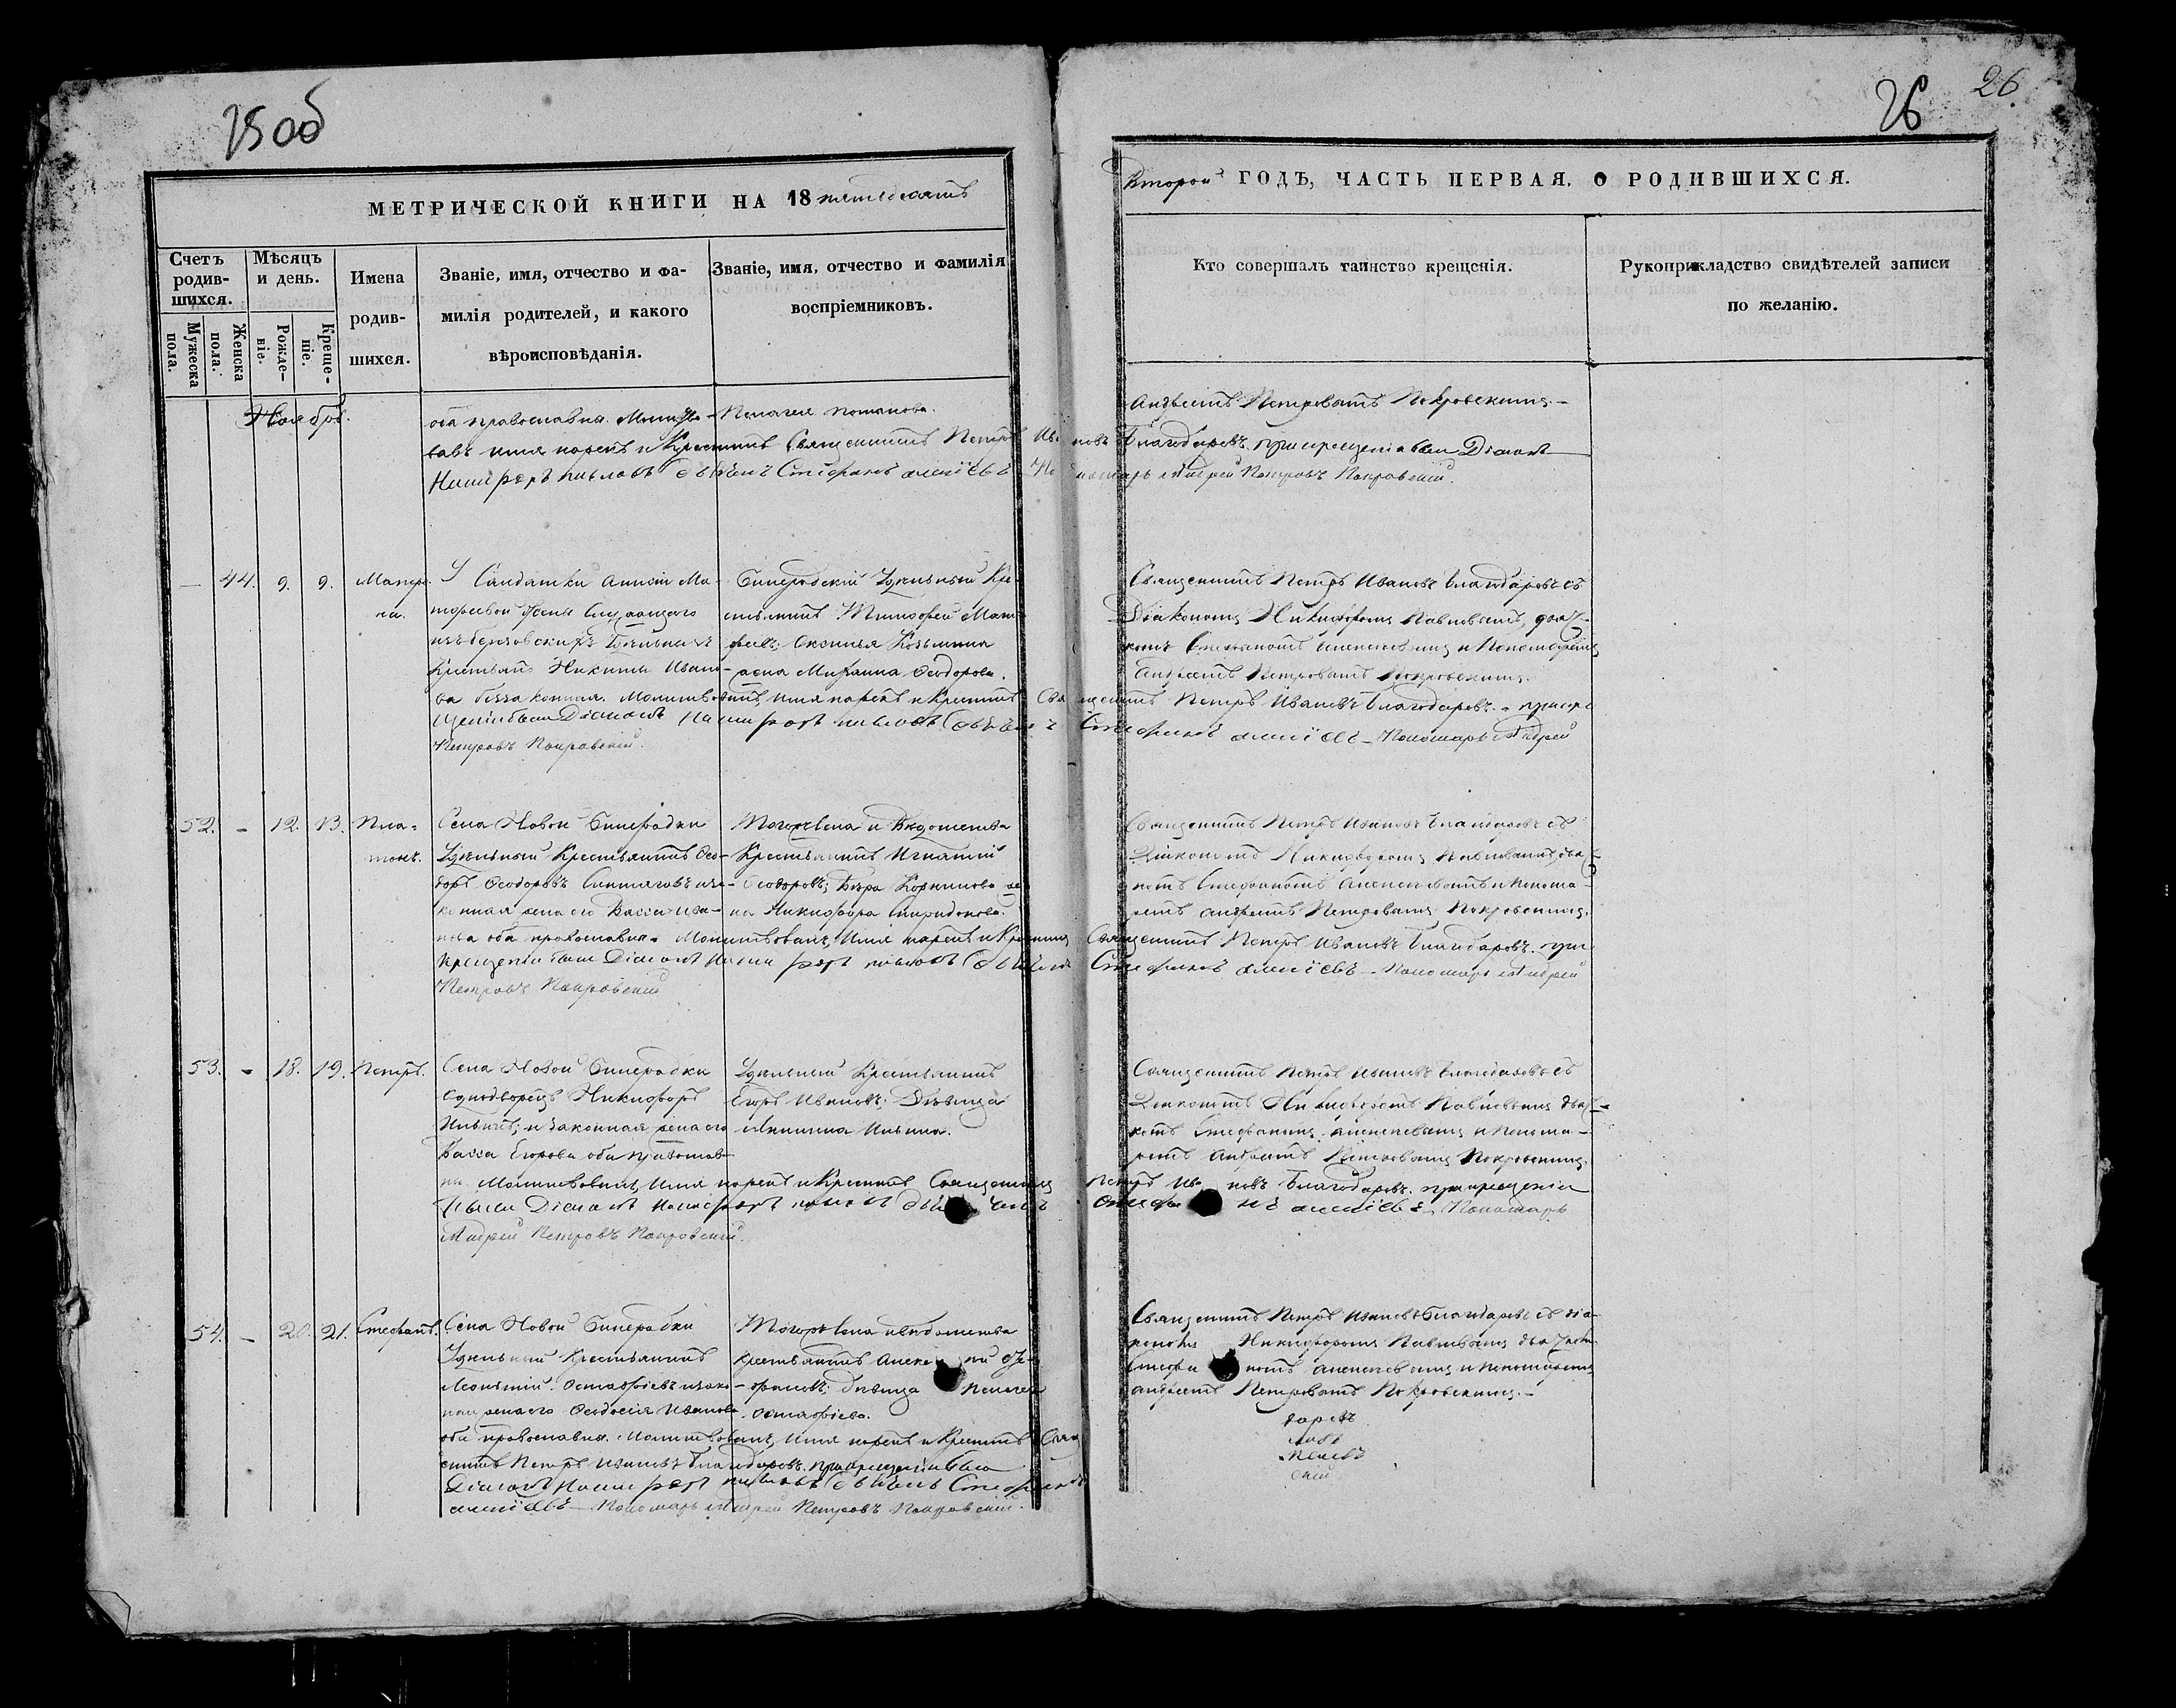 25 об
26
26
МЕТРИЧЕСКОЙ КНИГИ НА 18 пятьдесятъ
Второй ГОДЪ, ЧАСТЬ ПЕРВАЯ. О РОДИВШИХСЯ.
Счетъ родившихся.
Мужеска пола.
Женска пола.
Мѣсяцъ и день.
Рожденіе.
Крещеніе.
Имена
родив-
шихся.
Званіе, имя, отчество и фа-
милія родителей, и какого
вѣроисповѣданія.
Званіе, имя, отчество и фамилія
воспріемниковъ.
Кто совершалъ таинство крещенія.
Рукоприкладство свидѣтелей записи
по желанію.
Ноябрь.
оба православна. Молитво-
Пелагея Потапова.
Андреемъ Петровымъ Покровскимъ.
валъ имя нарекъ и крестилъ Священникъ Петръ Ивановъ Благодаровъ. при крещеніи были Діаконъ
Никифоръ Павловъ дьячекъ Стефанъ Пономарь Андрей Петровъ Покровскій.
— 44. 9. 9. Матре-
на.
У Солдатки Анисьи Ма-
тофеевой
крестьян Никиты Ивано-
ва беззаконная. Молитвовалъ имя нарекъ и крестилъ Священникъ Петръ Ивановъ Благодаровъ. при кре-
щеніи были Діаконъ Никифоръ Павловъ дьячекъ Стефанъ Пономарь Андрей
Петровъ Покровскій.
Бинерадскій Удѣльный Кре-
стьянинъ Тимофей Мат-
феевъ; Козьмина
жена Миханна Феодорова.
Священникъ Петръ Ивановъ Благодаровъ съ
Діакономъ Никифоромъ Павловымъ, дьяч-
комъ Стефаномъ и Пономаремъ
Андреемъ Петровымъ Покровскимъ.
52. - 12. 13. Пла-
тонъ.
Села Новой Бинерадки
Удѣльный крестьянинъ Ѳео-
доръ Ѳеодоровъ и за-
конная жена его Васса Ива-
нова оба православна. Молитвовалъ, Имя нарекъ и крестилъ Священникъ Петръ Ивановъ Благодаровъ. при
крещеніи были Діаконъ Никифоръ Павловъ дьячекъ Стефанъ Пономарь Андрей
Петровъ Покровскій
Тогоже села и вѣдомства
Крестьянинъ Игнатій
Ѳеодоровъ; Корнилова же-
на Никифора Спиридонова.
Священникъ Петръ Ивановъ Благодаровъ съ
Діакономъ Никифоромъ Павловымъ дьяч-
комъ Стефаномъ и Понома-
ремъ Андреемъ Петровымъ Покровскимъ.
53. - 18. 19. Петръ.
Села Новой Бинерадки
Однодворецъ Никифоръ
Ильинъ; и законная жена его
Васса Егорова оба православ-
ны. Молитвовалъ, Имя нарекъ и крестилъ Священникъ Петръ Ивановъ Благодаровъ. при крещеніи
были Діаконъ Никифоръ Павловъ дьячекъ Стефанъ Пономарь
Андрей Петровъ Покровскій.
Удѣльный Крестьянинъ
Егоръ Ивановъ; Дѣвица
Ильина.
Священникъ Петръ Ивановъ Благодаровъ съ
Діакономъ Никифоромъ Павловымъ дьяч-
комъ Стефаномъ и Понома-
ремъ Андреемъ Петровымъ Покровскимъ.
54. - 20. 21. Стефанъ.
Села Новой Бинерадки
Удѣльный Крестьянинъ
Леонтій Остафіевъ и зако-
ная жена его Ѳеодосія Иванова
оба православна. Молитвовалъ, Имя нарекъ и крестилъ Свящ-
енникъ Петръ Ивановъ Благодаровъ. при крещеніи были
Діаконъ Никифоръ Павловъ дьячекъ Стефанъ
Пономарь Андрей Петровъ Покровскій.
Тогоже села и вѣдомства
крестьянинъ
дѣвица Пелагея
Остафіева.
Священникъ Петръ Ивановъ Благодаровъ съ діа-
кономъ Никифоромъ Павловымъ дьячкомъ
Стефаномъ и пономаремъ
Андреемъ Петровымъ Покровскимъ.